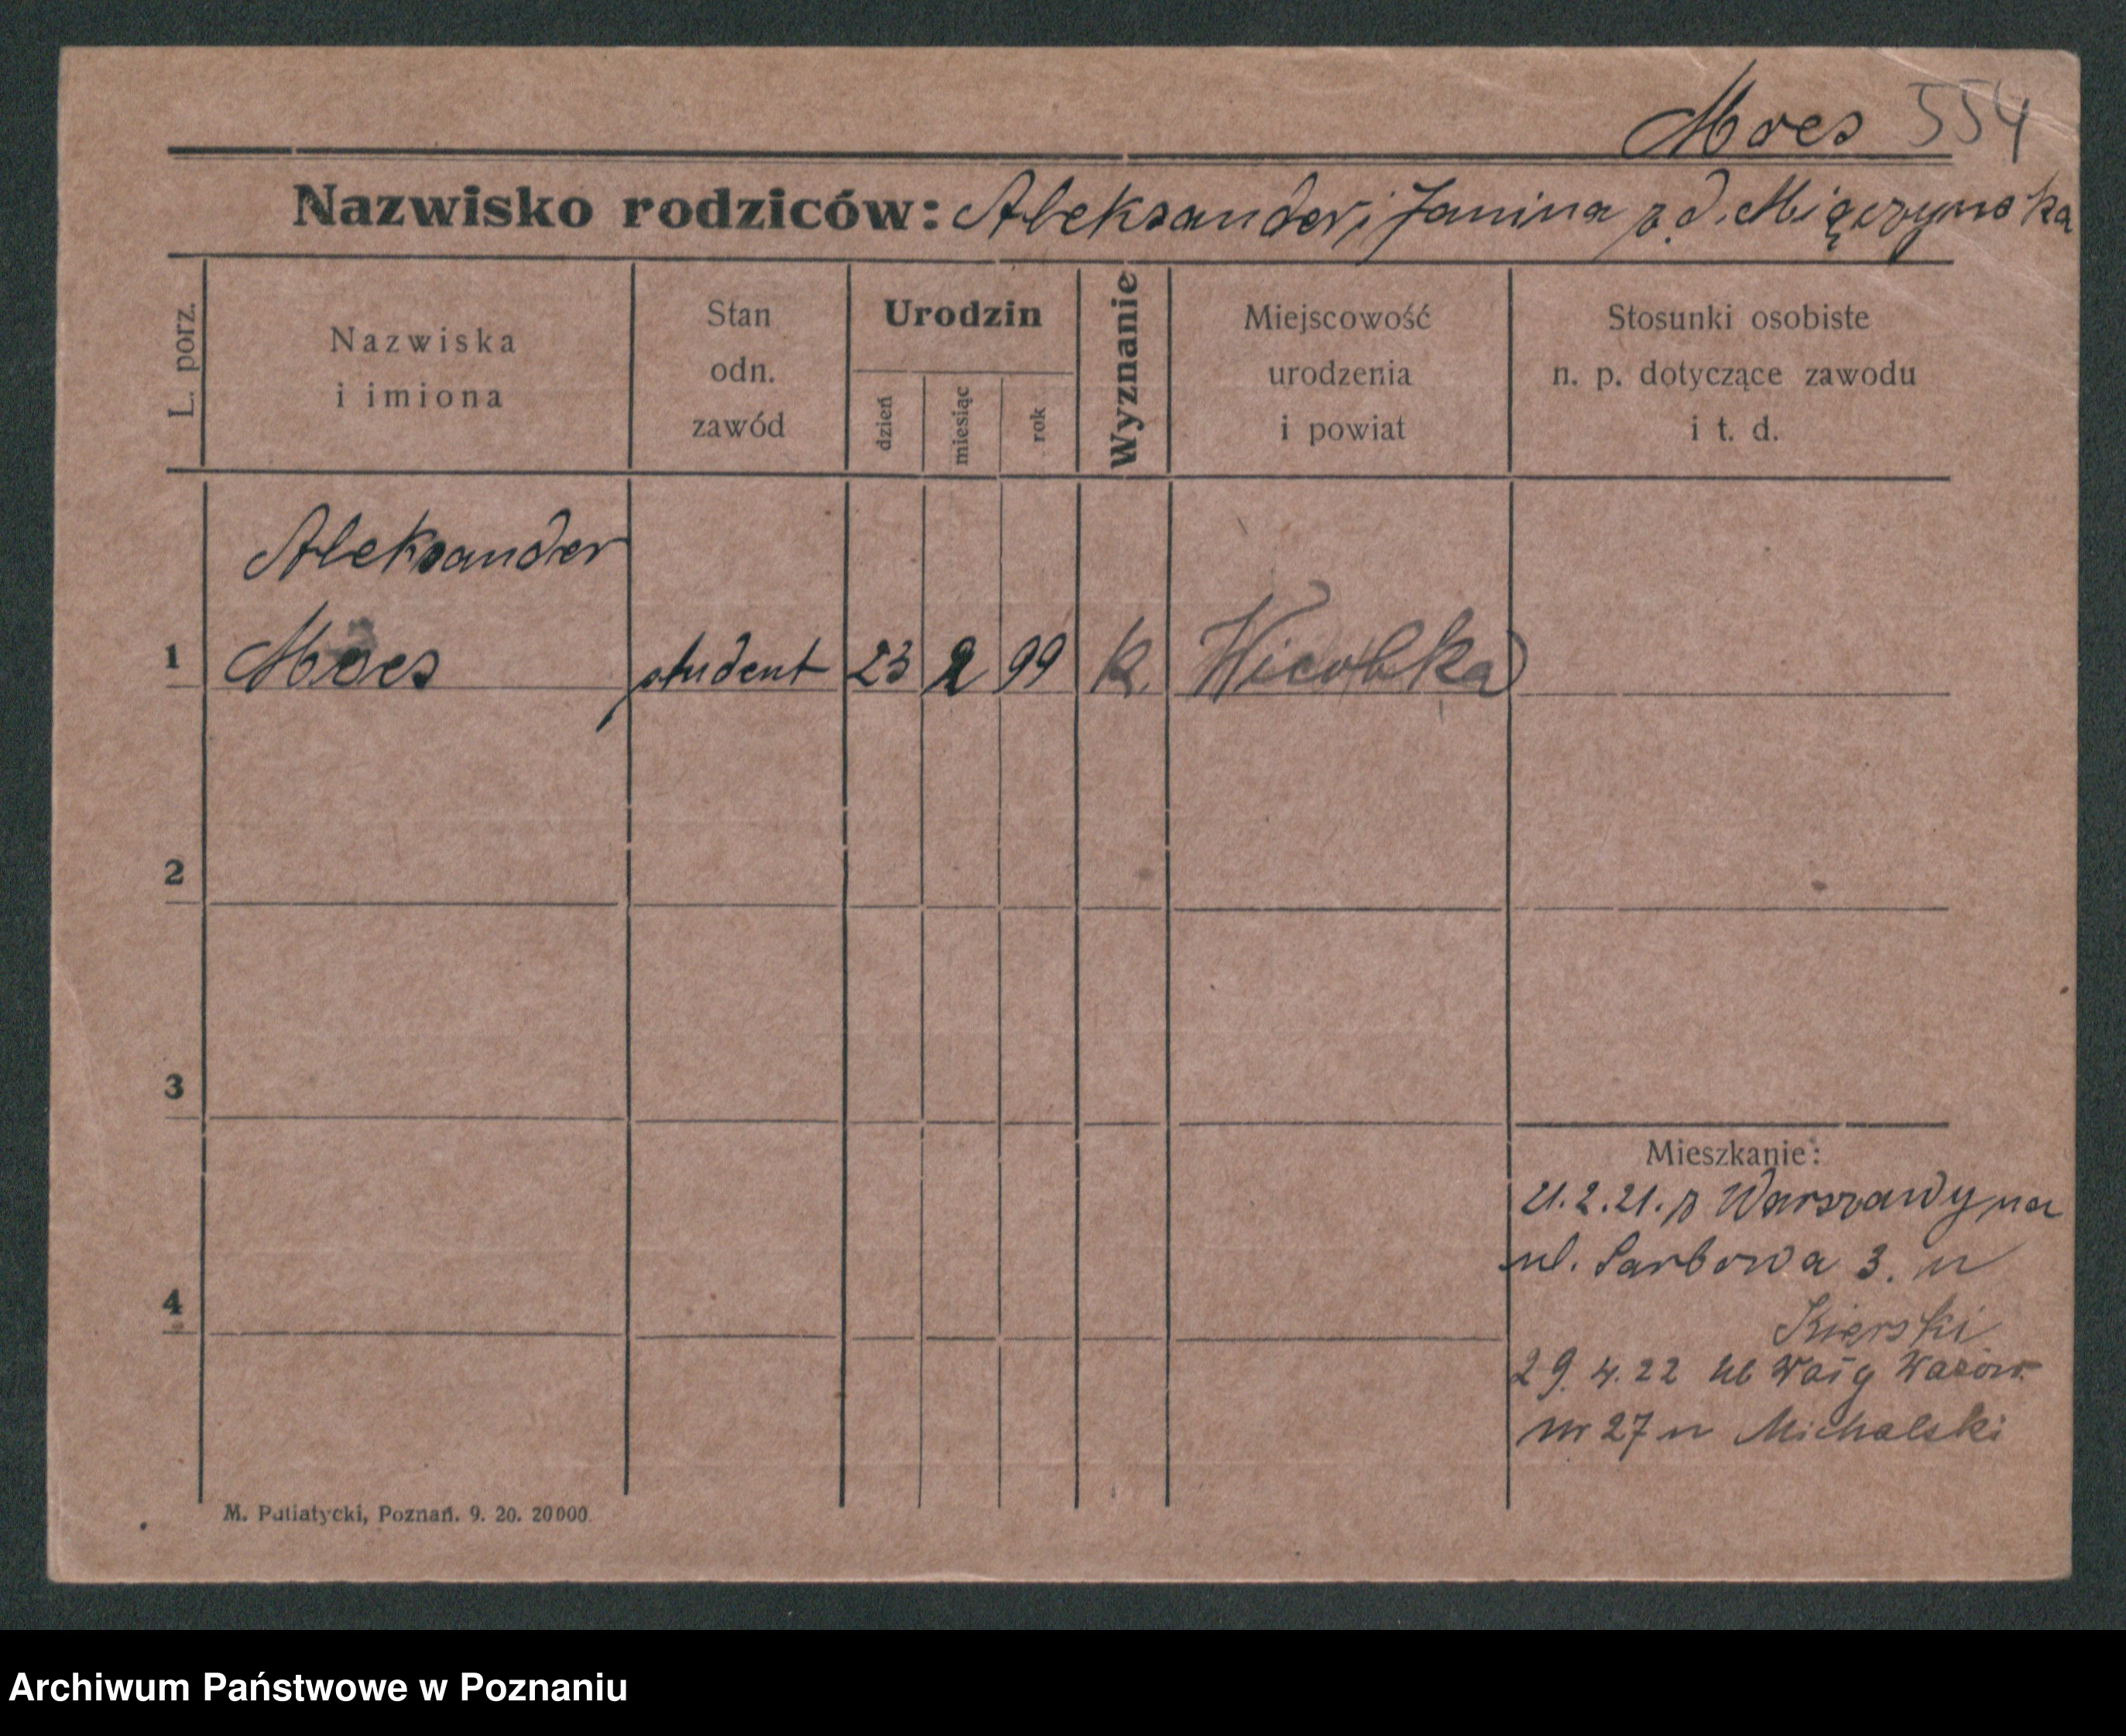 Moes 554
Nazwisko rodziców: Aleksander i Janina z d. Miączyńska
L. porz.
Nazwiska
i imiona
Stan
odn.
zawód
Urodzin
dzień
miesiąc
rok
Wyznanie
Miejscowość
urodzenia
i powiat
Stosunki osobiste
n. p. dotyczące zawodu
i t. d.
Aleksander
1 Moes student 23 2 99 k.
2
3
Mieszkanie:
21.2.21. z Warszawy na
ul. Sarbowa 3. u
4
Kierski
29. 4. 22
nr 27 u Michalski
M. Putiatycki, Poznań. 9. 20. 20000.
Archiwum Państwowe w Poznaniu